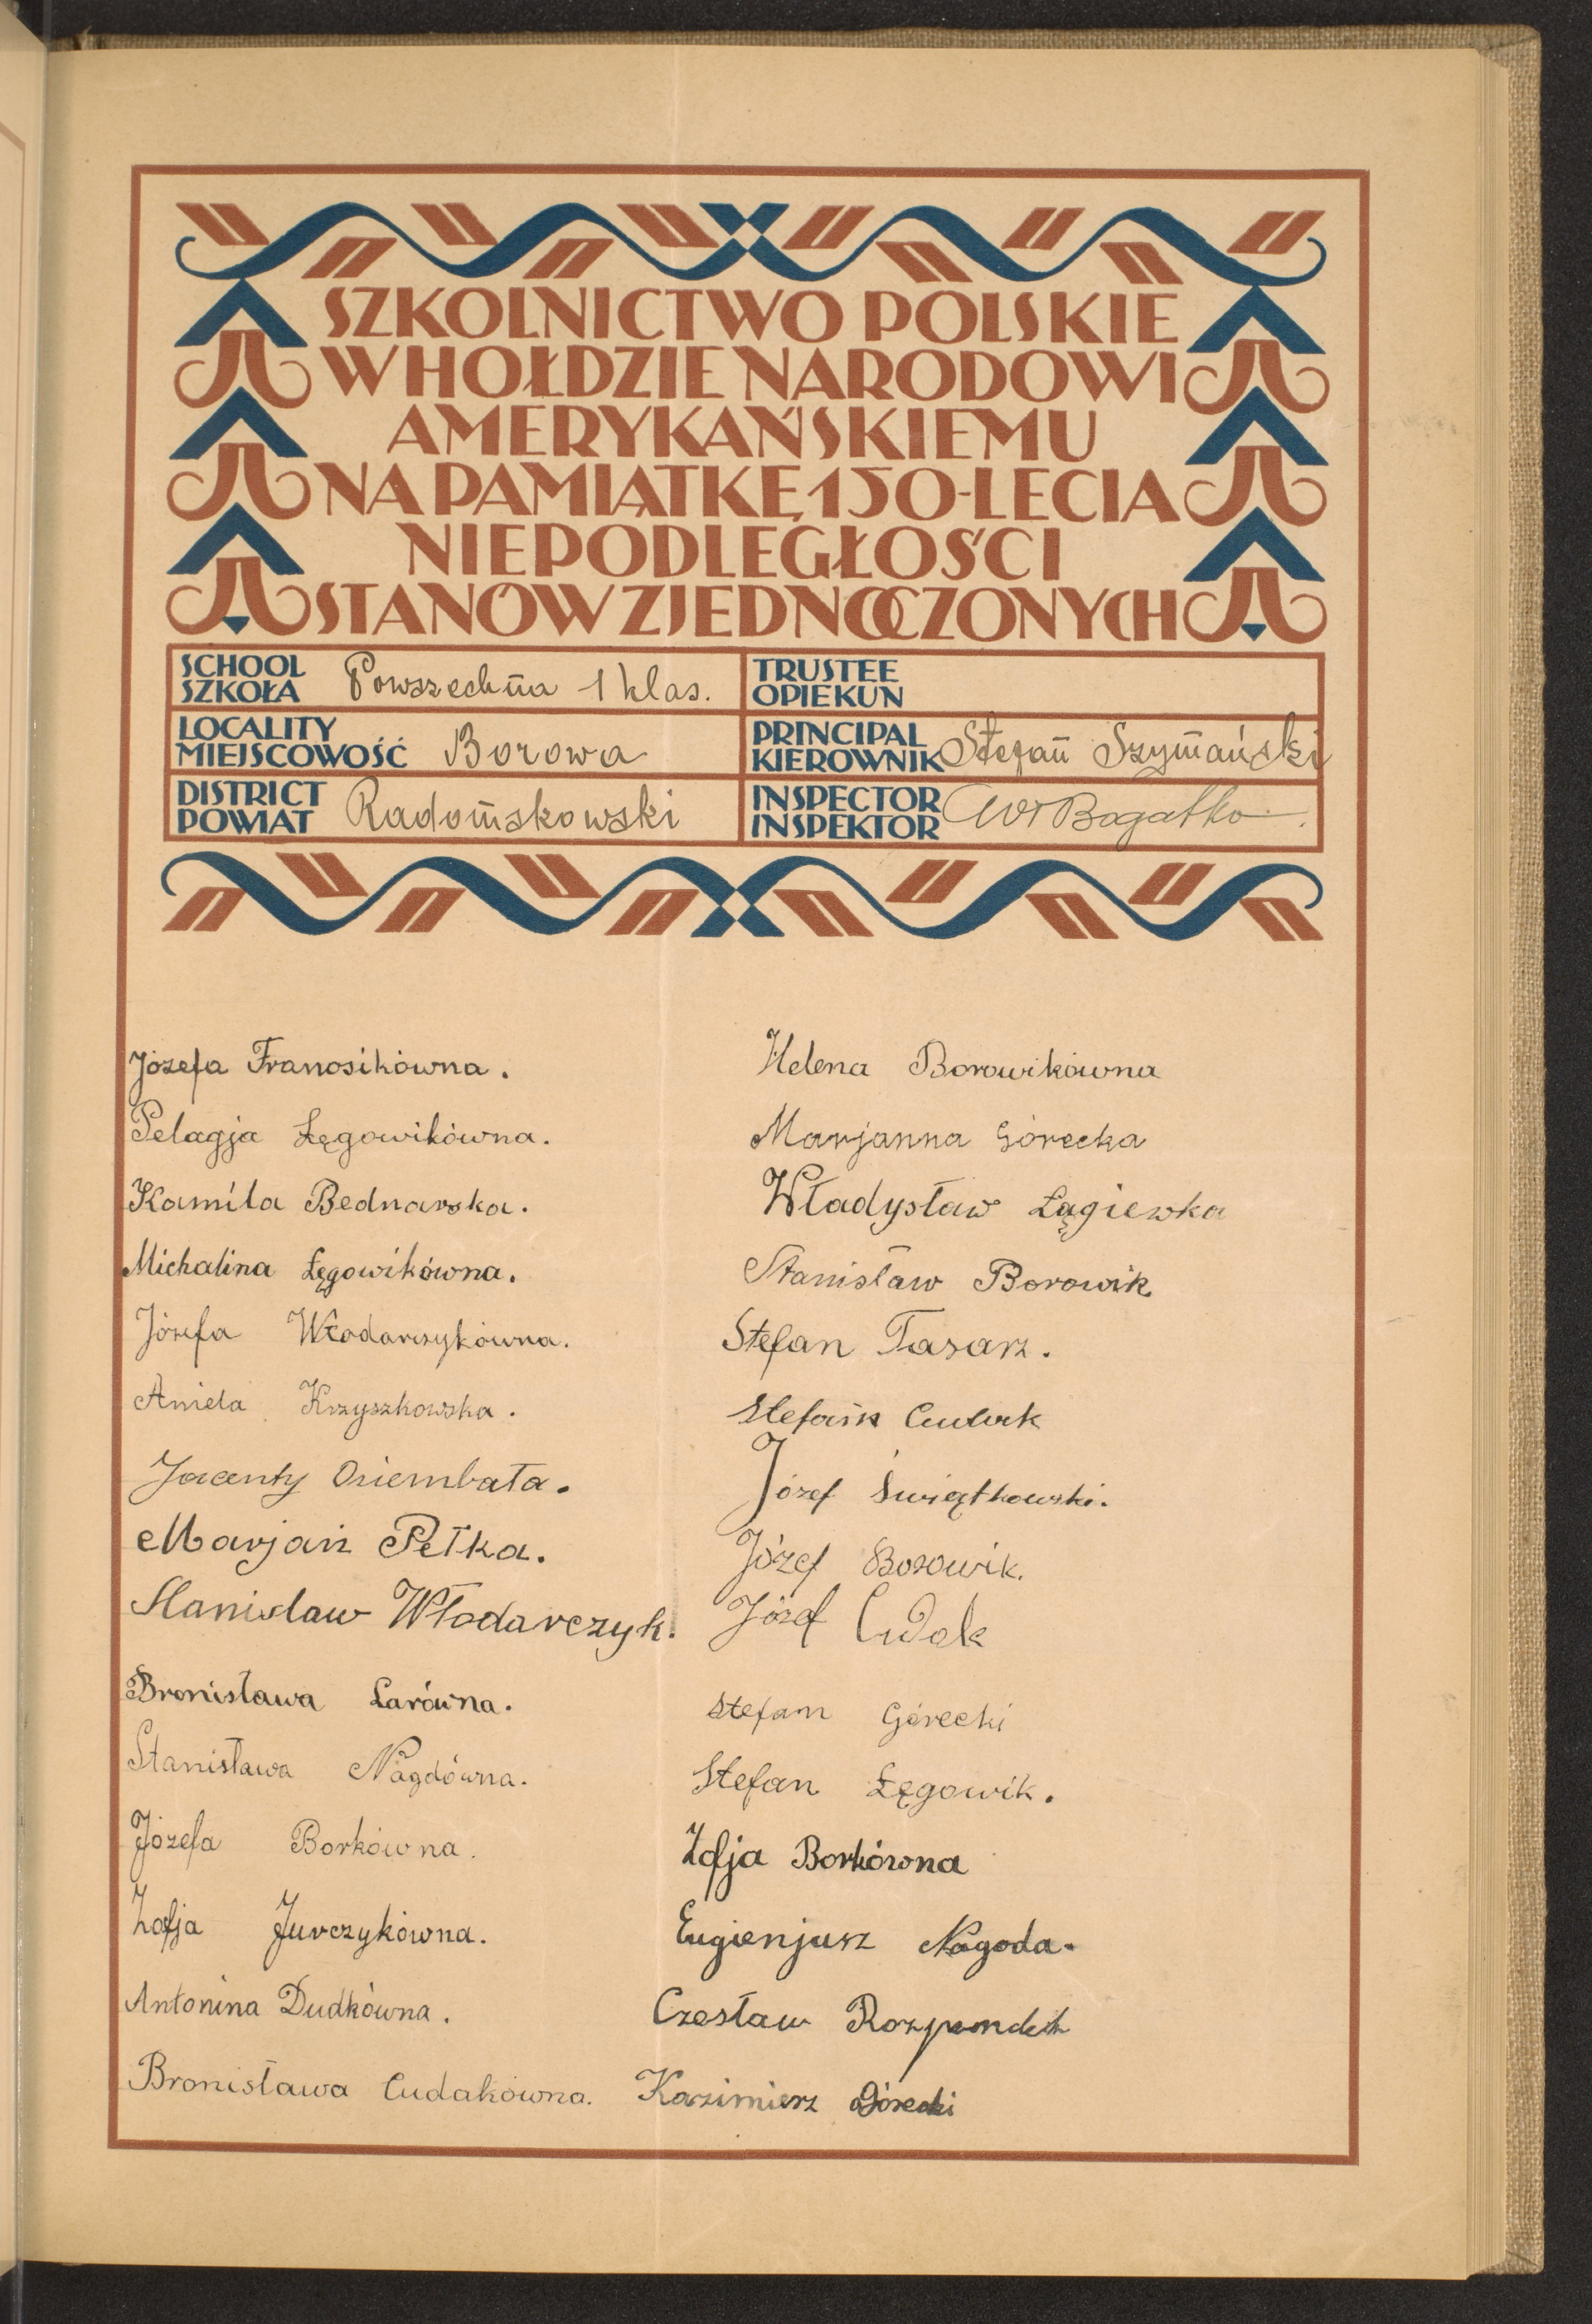 SZKOLNICTWO POLSKIE
W HOŁDZIE NARODOWI
AMERYKAŃSKIEMU
NA PAMIĄTKĘ 150-LECIA
NIEPODLEGŁOŚCI
STANÓW ZJEDNOCZONYCH
SCHOOL
SZKOŁA Powszechna 1 klas.
TRUSTEE
OPIEKUN
LOCALITY
MIEJSCOWOŚĆ Borowa
PRINCIPAL
KIEROWNIK Stefan Szymański
DISTRICT
POWIAT Radomskowski
INSPECTOR
INSPEKTOR Bogatko
Józefa Franosikówna.
Pelagja Łęgowikówna.
Kamila Bednarska.
Michalina Łęgowikówna.
Józefa Włodarczykówna.
Aniela Krzyszkowska.
Jacenty Osiembała.
Marjan Pełka.
Stanisław Włodarczyk.
Bronisława Larówna.
Stanisława Nagdówna.
Józefa Borkówna.
Zofja Jurczykówna.
Antonina Dudkówna.
Bronisława Cudakówna.
Helena Borowikówna
Marjanna Górecka
Władysław Łągiewka
Stanisław Borowik
Stefan Tasarz.
Stefan
Józef Świątkowski.
Józef Borowik.
Józef Cudak
Stefan Górecki
Stefan Łęgowik.
Zofja Borkówna
Eugienjusz Nagoda.
Czesław
Kazimierz Górecki